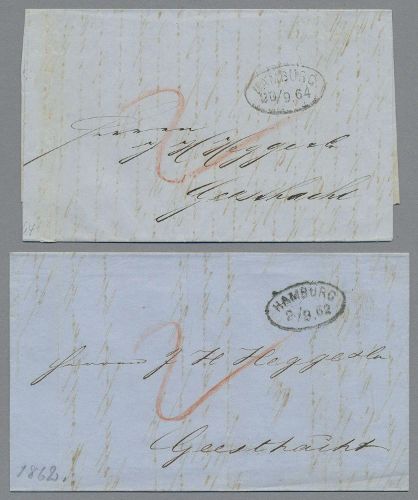 HAMBURG
20/9.64
Herrn
J H
Geesthacht
HAMBURG
2/9.62
Herrn J H
Geesthacht
1862.